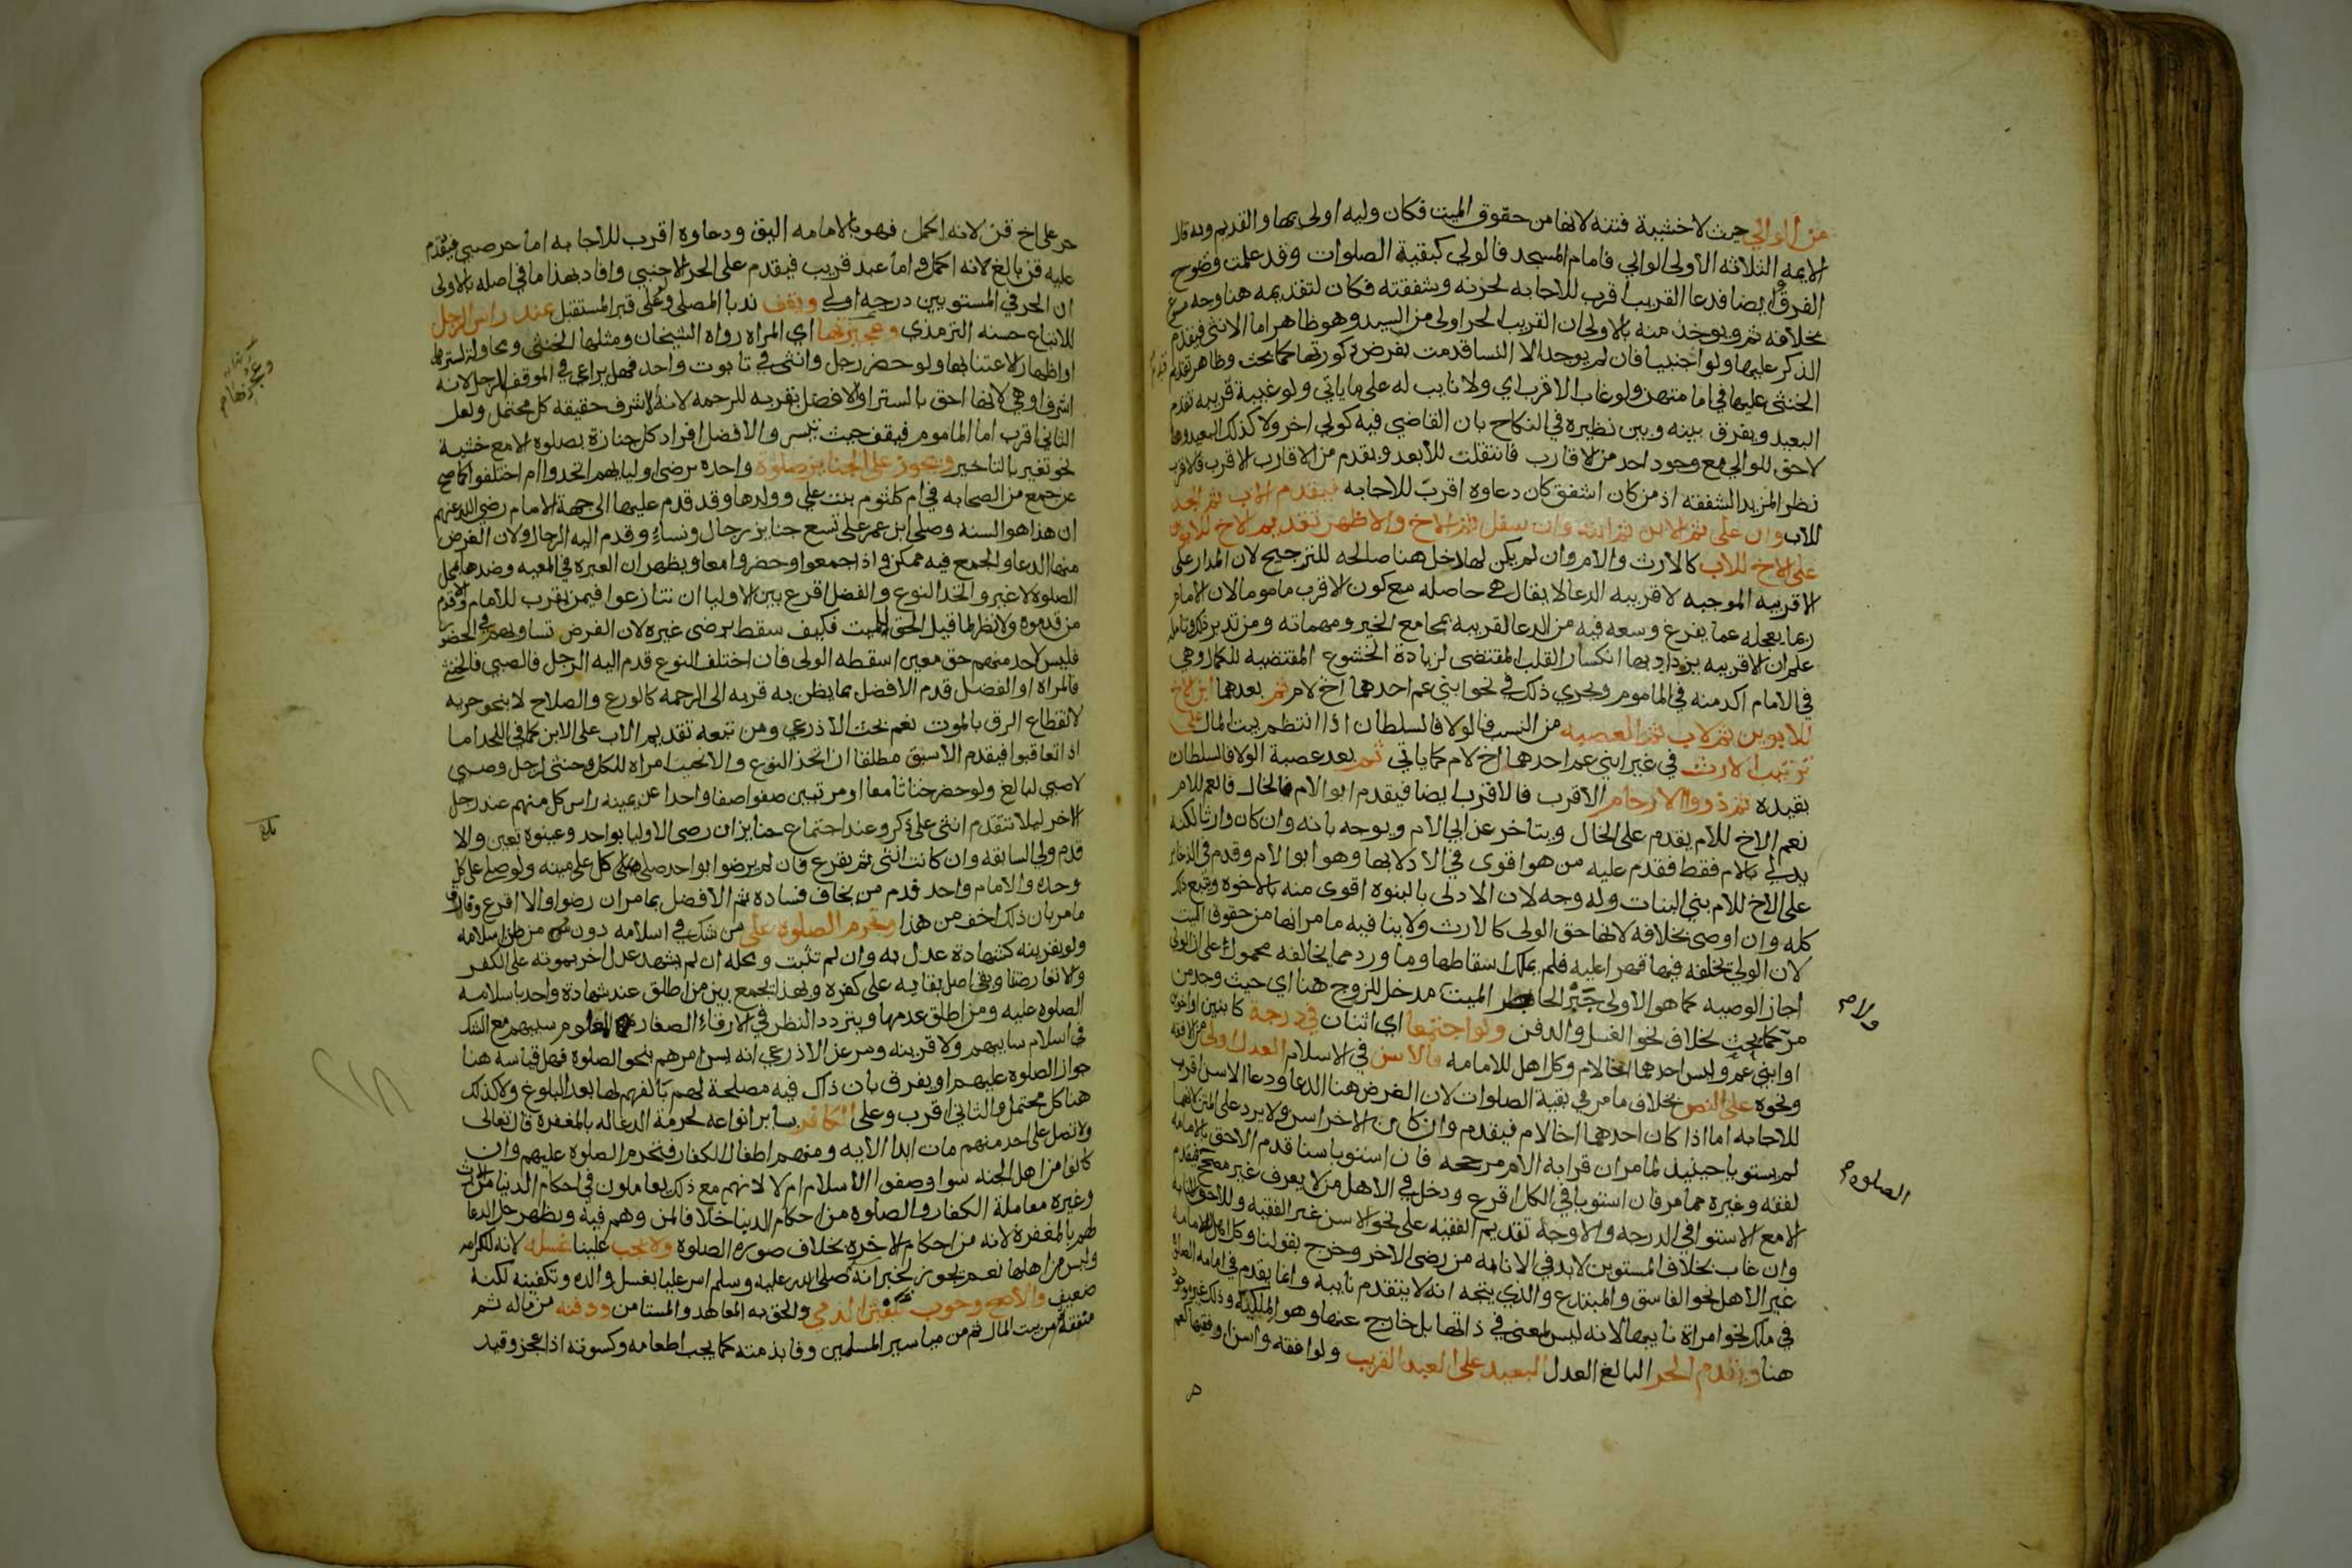 من الوالي حيث لا خشية فتنه لانها من حقوق الميت فكان وليه اولى بها والقديم وبه قال
الايمه الثلاثه الاولى الوالي فامام المسجد فالولي كبقية الصلوات وقد علمت وضوح
الفرق ايضا فدعا القريب اقرب للاجابه لحزنه وشفقته فكان لتقديمه هنا وجه
بخلافه ثم ويوخذ منه بالاولى ان القريب الحر اولى من السيد وهو ظاهر اما الانثى فيقدم
الذكر عليها ولو اجنبيا فان لم يوجد الا النسا قدمت بفرض ذكورتها كما بحث وظاهر تقديم
الخنثى عليها في امامتهن ولو غاب الاقرب اي ولا نايب له على ما ياتي ولو غيبة قريبه تقدم
البعيد ويفرق بينه وبين نظيره في النكاح بان القاضي فيه كولي اخر ولا كذلك البعيد وهنا
لا حق للوالي مع وجود احد من الاقارب فانتقلت للابعد ويقدم من الاقارب الاقرب فالاقرب
نظرا لمزيد الشفقه اذ من كان اشفق كان دعاوه اقرب للاجابه فيقدم الاب ثم الجد
للاب وان على ثم الابن ثم ابنه وان سفل ثم الاخ والاظهر تقديم الاخ للابوين
على الاخ للاب كالارث والام وان لم يكن لها دخل هنا صالحه للترجيح لان المدار على
الاقربيه الموجبه لاقربيه الدعا لا يقال هي حاصله مع كون الاقرب ماموما لان الامام
ربما يعجله عما يفرغ وسعه فيه من الدعا لقريبه بمجامع الخير ومهماته ومن تدبر ذلك وتامله
علم ان الاقربيه يزداد بها انكسار القلب المقتضى لزيادة الخشوع المقتضيه للكمال وهي
في الامام اكد منه في الماموم ويجري ذلك في نحو ابني عم احدهما اخ لام ثم بعدهما ابن الاخ
للابوين ثم لاب ثم العصبه من النسب فالولا فالسلطان اذا انتظم بيت المال على
ترتيب الارث في غير ابني عم احدهما اخ لام كما ياتي ثم بعد عصبة الولا فالسلطان
بقيده ثم ذووا الارحام الاقرب فالاقرب ايضا فيقدم ابو الام فالخال فالعم للام
نعم الاخ للام يقدم على الخال ويتاخر عن ابي الام ويوجه بانه وان كان وارثا لكنه
يدلي بالام فقط فقدم عليه من هو اقوى في الادلا بها وهو ابو الام وقدم في الذخاير
على الاخ للام بني البنات وله وجه لان الادلى بالبنوه اقوى منه بالاخوه
كله وان اوصى بخلافه لانها حق الولى كالارث ولا ينافيه ما مر انها من حقوق الميت
لان الولي يخلفه فيها قهرا عليه فلم يملك اسقاطها وما ورد مما يخالفه محمول على ان الولي
اجاز الوصيه كما هو الاولى جبرا لخاطر الميت مدخل للزوج هنا اي حيث وجد من
مر كما بحث بخلاف نحو الغسل والدفن ولو اجتمعا اي اثنان في درجة كابنين او اخوين
او ابني عم وليس احدهما اخا لام وكل اهل للامامه فالاسن في الاسلام العدل اولى من الافقه
ونحوه على النص بخلاف ما مر في بقية الصلوات لان الغرض هنا الدعا ودعا الاسن اقرب
للاجابه اما اذا كان احدهما اخا لام فيقدم وان كان الاخر اسن ولا يرد على المتن لانهما
لم يستويا حينيذ لما مر ان قرابه الام مرجحه فان استويا سنا قدم الاحق بالامامه
لفقه وغيره مما مر فان استويا في الكل اقرع ودخل في الاهل من لا يعرف غير مصحح فيقدم
الا مع الاستوا في الدرجه والاوجه تقديم الفقيه على نحو الاسن غير الفقيه وللاحق الانابه
وان غاب بخلاف المستوين لابد في الانابه من رضى الاخر وخرج بقولنا وكل اهل للامامه
غير الاهل نحو الفاسق والمبتدع والذي يتجه انه لا يتقدم نايبه وانما يقدم في امامه الصلاة
في ملك نحو امراة نايبها لانه ليس لمعنى في ذاتها بل خارج عنها وهو الملكيه وذلك غير موجود
هنا ويقدم الحر البالغ العدل البعيد على العبد القريب ولو افقه واسن او فقيها كعم
ولام
الصلوه
حر على اخ قن لانه اكمل فهو بالامامه اليق ودعاوه اقرب للاجابه اما حر صبي فيقدم
عليه قن بالغ لانه اكمل واما عبد قريب فيقدم على الحر الاجنبي وافاد بهذا ما في اصله بالاولى
ان الحر في المستويين درجه اولى ويقف ندبا المصلي ولو على قبر المستقبل عند راس الرجل
للاتباع حسنه الترمذي وعجيزتها اي المراه رواه الشيخان ومثلها الخنثى ومحاولة لسترها
او اظهارا لاعتنا بها ولو حضر رجل وانثى في تابوت واحد فهل يراعى في الموقف الرجل لانه
اشرف او هي لانها احق بالستر او الافضل بقربه للرحمه لانه الاشرف حقيقه كل محتمل ولعل
الثاني اقرب اما الماموم فيقف حيث تيسر والافضل افراد كل جنازة بصلوة الا مع خشية
نحو تغير بالتاخير ويجوز على الجنايز صلوة واحده برضى اوليايهم اتحدوا ام اختلفوا كما صح
عن جمع من الصحابه في ام كلثوم بنت علي وولدها وقد قدم عليها الى جهة الامام رضي الله عنهم
ان هذا هو السنه وصلى ابن عمر على تسع جنايز رجال ونساء وقدم اليه الرجال ولان الغرض
منها الدعا والجمع فيه ممكن واذا جمعوا وحضروا معا ويظهر ان العبره في المعيه وضدها بمحل
الصلوة لا غير واتحد النوع والفضل اقرع بين الاوليا ان تنازعوا فيمن يقرب للامام والا قدم
من قدموه ولا نظر لما قيل الحق للميت فكيف سقط برضى غيره لان الفرض تساويهم في الحضور
فليس لاحد منهم حق معين اسقطه الولى فان اختلف النوع قدم اليه الرجل فالصبي فالخنثى
فالمراه او الفضل قدم الافضل بما يظن به قربه الى الرحمه كالورع والصلاح لا بنحو حريه
لانقطاع الرق بالموت نعم بحث الاذرعي ومن تبعه تقديم الاب على الابن كما في اللحد اما
اذا تعاقبوا فيقدم الاسبق مطلقا ان اتحد النوع والا نحيت امراه للكل وخنثى لرجل وصبي
لا صبي لبالغ ولو حضر خناثا معا او مرتبين صفوا صفا واحدا عن يمينه راس كل منهم عند رجل
الاخر ليلا تتقدم انثى على ذكر وعند اجتماع جنايز ان رضى الاوليا بواحد وعينوه تعين والا
قدم ولي السابقه وان كانت انثى ثم يقرع فان لم يرضوا بواحد صلى كل على ميته ولو صلى على كل
وحده والامام واحد قدم من يخاف فساده ثم الافضل بما مر ان رضوا والا اقرع وفارق
ما مر بان ذلك اخف من هذا وتحرم الصلوة على من شك في اسلامه دون من ظن اسلامه
ولو بقرينه كشهادة عدل به وان لم تثبت ومحله ان لم يشهد عدل اخر بموته على الكفر
والا تعارضتا وبقي اصل بقايه على كفره وبهذا يجمع بين من اطلق عند شهادة واحد باسلامه
الصلوه عليه ومن اطلق عدمها ويتردد النظر في الارقاء الصغار المعلوم سبيهم مع الشك
في اسلام سابيهم ولا قرينه ومر عن الاذرعي انه يسن امرهم بنحو الصلوة فهل قياسه هنا
جواز الصلوه عليهم او يفرق بان ذاك فيه مصلحة لهم بالفهم لها بعد البلوغ ولا كذلك
هنا كل محتمل والثاني اقرب وعلى الكافر بساير انواعه لحرمة الدعا له بالمغفرة قال تعالى
ولا تصل على احد منهم مات ابدا الايه ومنهم اطفال الكفار فتحرم الصلوة عليهم وان
كانوا من اهل الجنه سوا وصفوا الاسلام ام لا لانهم مع ذلك يعاملون في احكام الدنيا من الارث
وغيره معاملة الكفار والصلوة من احكام الدنيا خلافا لمن وهم فيه ويظهر حل الدعا
لهم بالمغفرة لانه من احكام الاخرة بخلاف صورة الصلوة ولا يجب علينا غسله لانه للكرامه
وليس من اهلها نعم يجوز لخبر انه صلى الله عليه وسلم امر عليا بغسل والده وتكفينه لكنه
ضعيف والاصح وجوب تكفين الذمي والحق به المعاهد والمستامن ودفنه من ماله ثم
منفقه ثم من بيت المال ثم من مياسير المسلمين وفا بذمته كما يجب اطعامه وكسوته اذا عجز وقيد